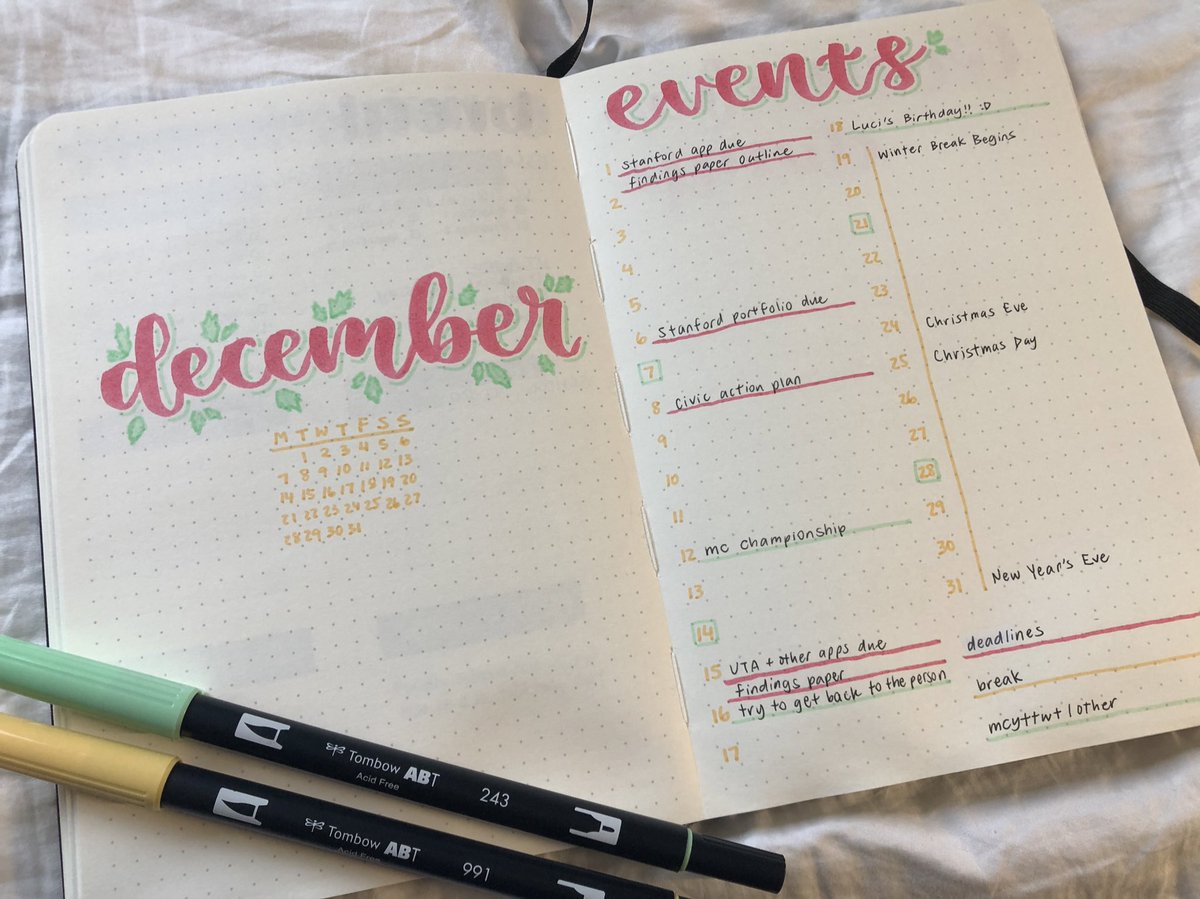 december
M T W T F S S
1 2 3 4 5 6
7 8 9 10 11 12 13
14 15 16 17 18 19 20
21 22 23 24 25 26 27
28 29 30 31
events
1 Stanford app due
findings paper outline
2
3
4
5
6 Stanford portfolio due
7
8 Civic action plan
9
10
11
12 mc championship
13
14
15 UTA + other apps due
findings paper
16 try to get back to the person
17
18 Luci's Birthday!! :D
19 Winter Break Begins
20
21
22
23
24 Christmas Eve
25 Christmas Day
26
27
28
29
30
31 New Year's Eve
deadlines
break
mcyttwt / other
Tombow ABT
Acid Free
243
Tombow ABT
Acid Free
991